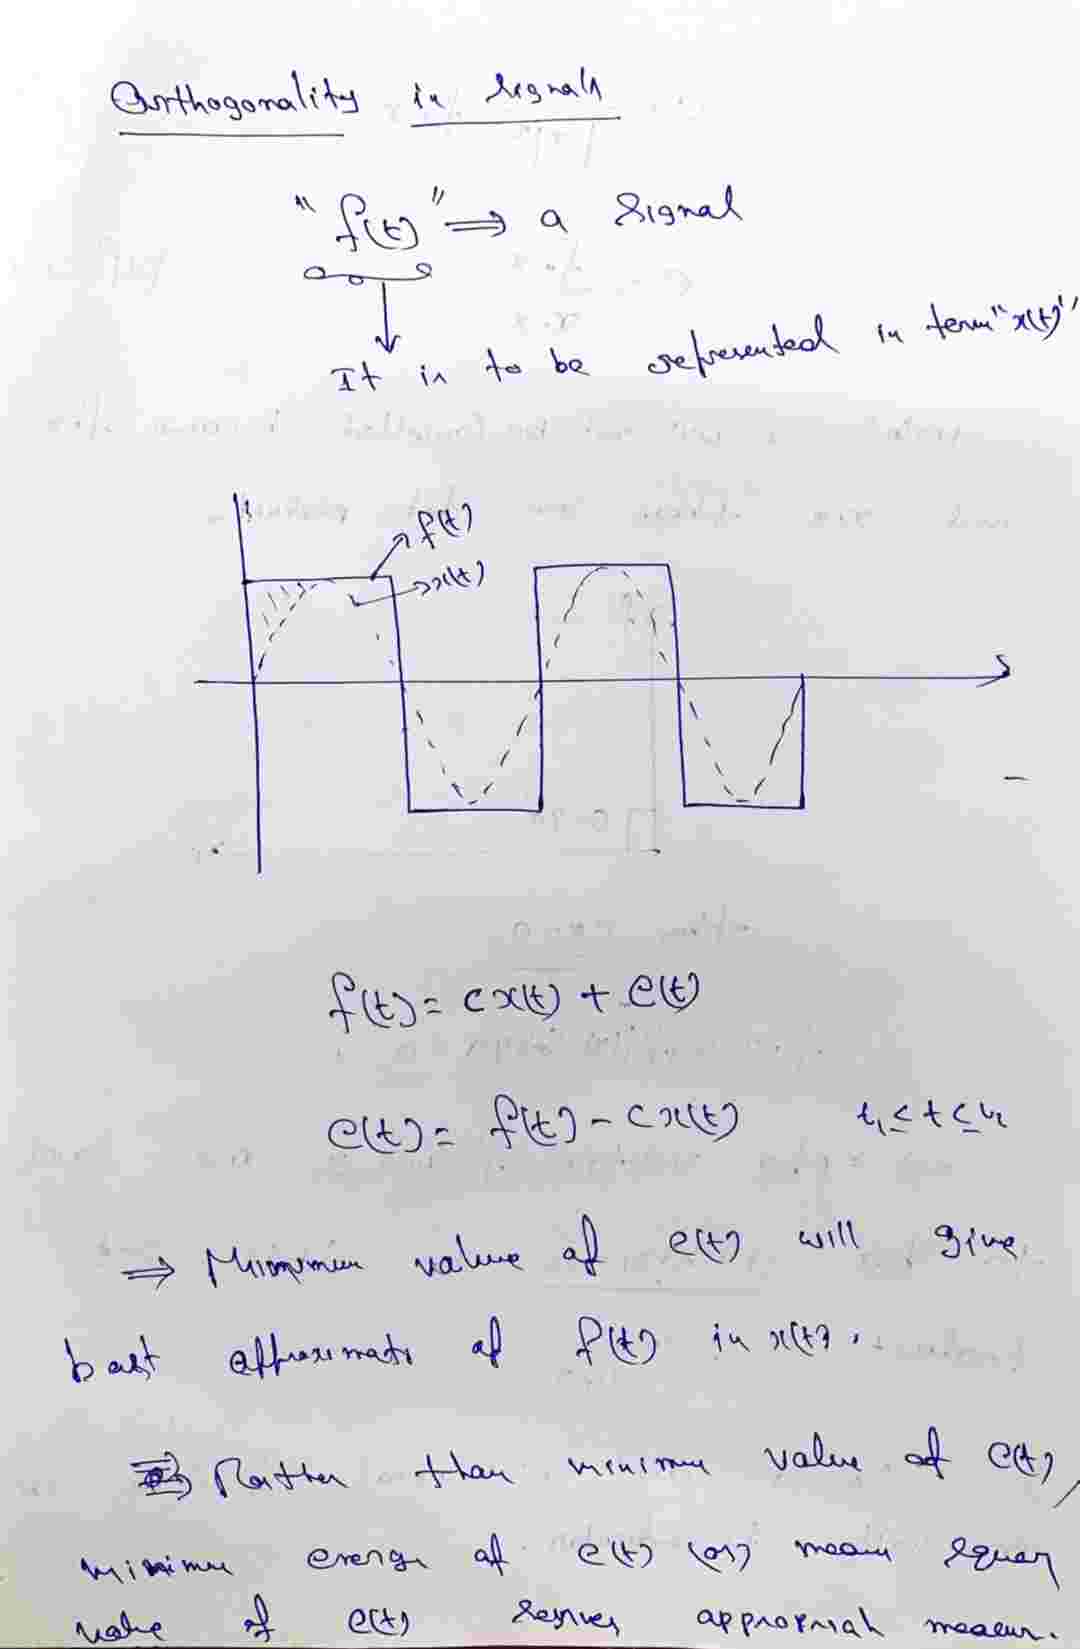 Orthogonality in signals
"f(t)" ⇒ a signal
It is to be represented in term "x(t)"
f(t)
x(t)
f(t) = cx(t) + e(t)
e(t) = f(t) - cx(t) t₁ ≤ t ≤ t₂
⇒ Minimum value of e(t) will give
best approximate of f(t) in x(t).
⇒ Rather than minimum value of e(t),
minimum energy of e(t) (or) mean square
value of e(t) serves appropriate measure.